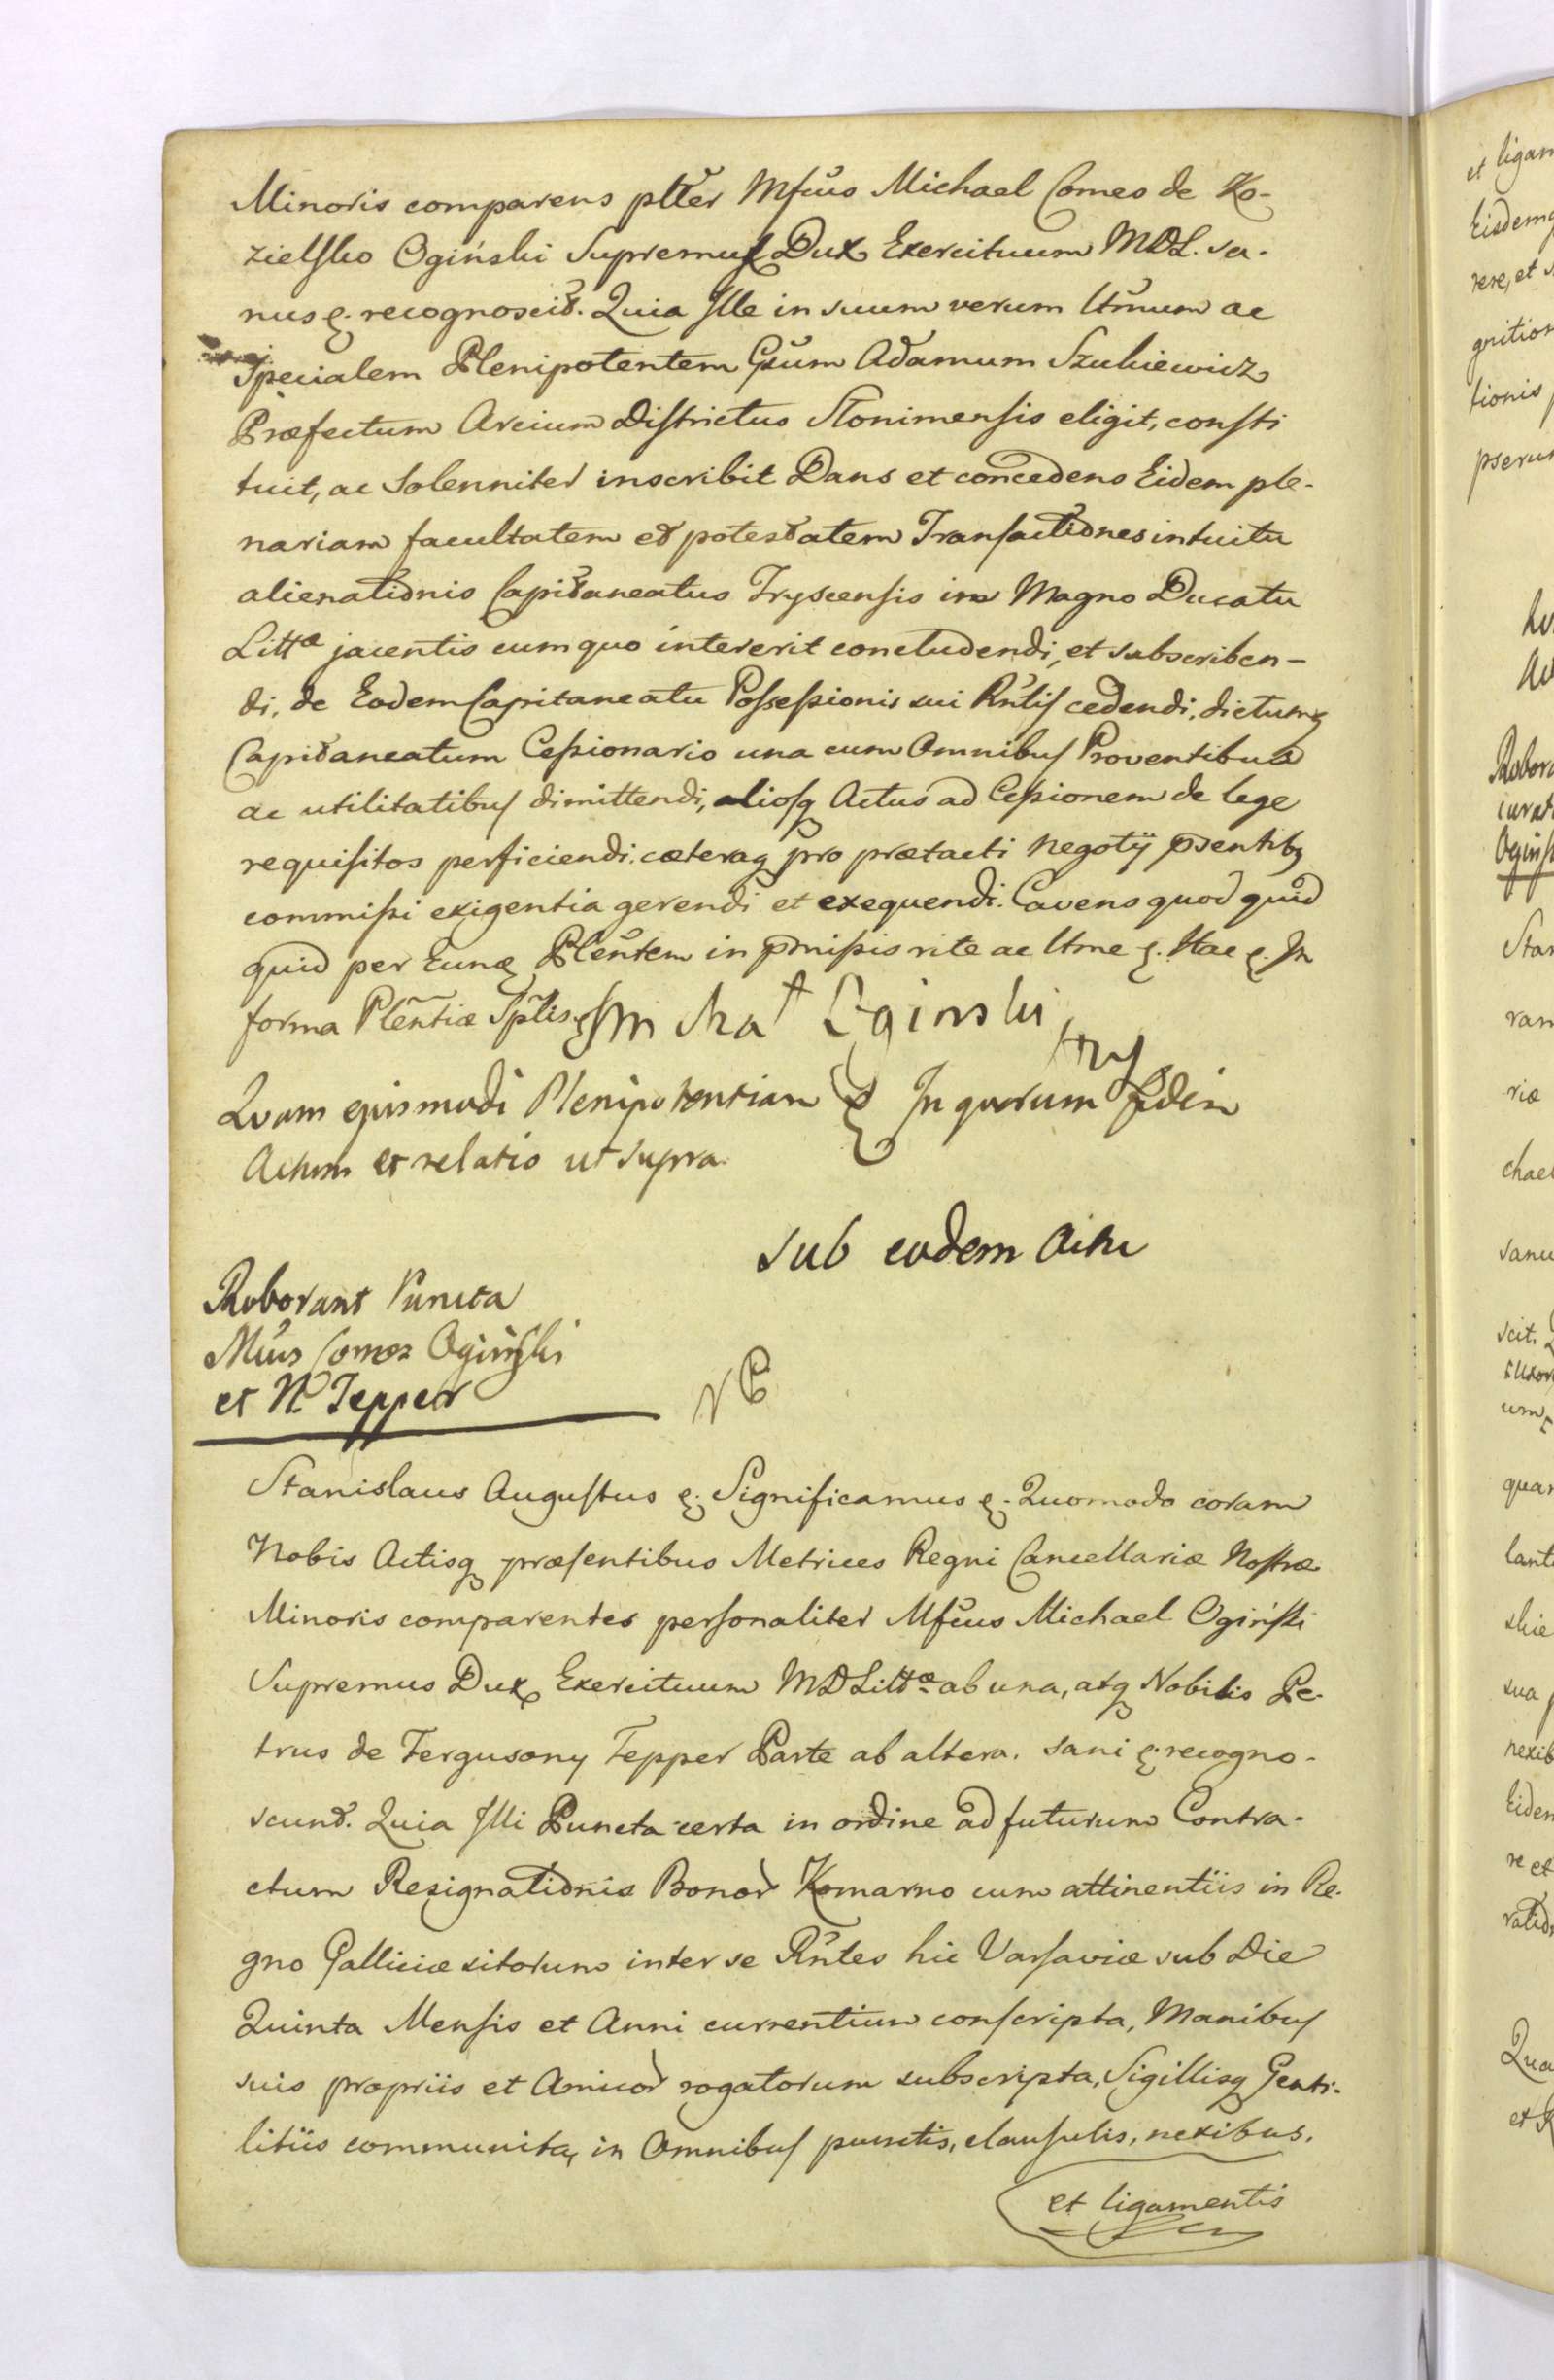 Minoris comparens pltter Mfcus Michael Comes de Ko-
zielsko Ogiński Supremus Dux Exercituum MDL. sa-
nus &. recognoscit. Quia Ille in suum verum ltmum ac
Specialem Plenipotentem Gsum Adamum Szukiewicz
Præfectum Arcium Districtus Słonimensis eligit, consti
tuit, ac Solenniter inscribit Dans et concedens Eidem ple-
nariam facultatem et potestatem Transactiones intuitu
alienationis Capitaneatus Tryscensis in Magno Ducatu
Littæ jacentis cum quo intererit concludendi, et subscriben-
di, de Eodem Capitaneatu Possessionis sui Rntis cedendi, dictumq
Capitaneatum Cessionario una cum Omnibus Proventibus
ac utilitatibus dimittendi, aliosq Actus ad Cessionem de lege
requisitos perficiendi, cæteraq pro prætacti negotÿ psentibq
commissi exigentia gerendi et exequendi. Cavens quod quid
quid per Eunq Plentem in pmissis rite ac ltme &. Hac &. In
forma Plentiæ Splis &
Oginski
Quam ejusmodi Plenipotentiam & In quorum fidem
Actum et relatio ut supra.
Sub eodem Actu
Roborant Puncta
Mcus Comes Ogiński
et N Tepper
Stanislaus Augustus &. Significamus &. Quomodo coram
Nobis Actisq præsentibus Metrices Regni Cancellariæ Nostræ
Minoris comparentes personaliter Mfcus Michael Ogiński
Supremus Dux Exercituum MD Littæ ab una, atq Nobilis Pe-
trus de Fergusony Tepper Parte ab altera. sani &. recogno-
scunt. Quia Illi Puncta certa in ordine ad futurum Contra-
ctum Resignationis Bonor Komarno cum attinentiis in Re-
gno Galliciæ sitorum inter se Rntes hic Varsaviæ sub Die
Quinta Mensis et Anni currentium conscripta, Manibus
suis propriis et Amicor rogatorum subscripta, Sigillisq Genti-
litiis communita, in Omnibus punctis, clausulis, nexibus,
et ligamentis